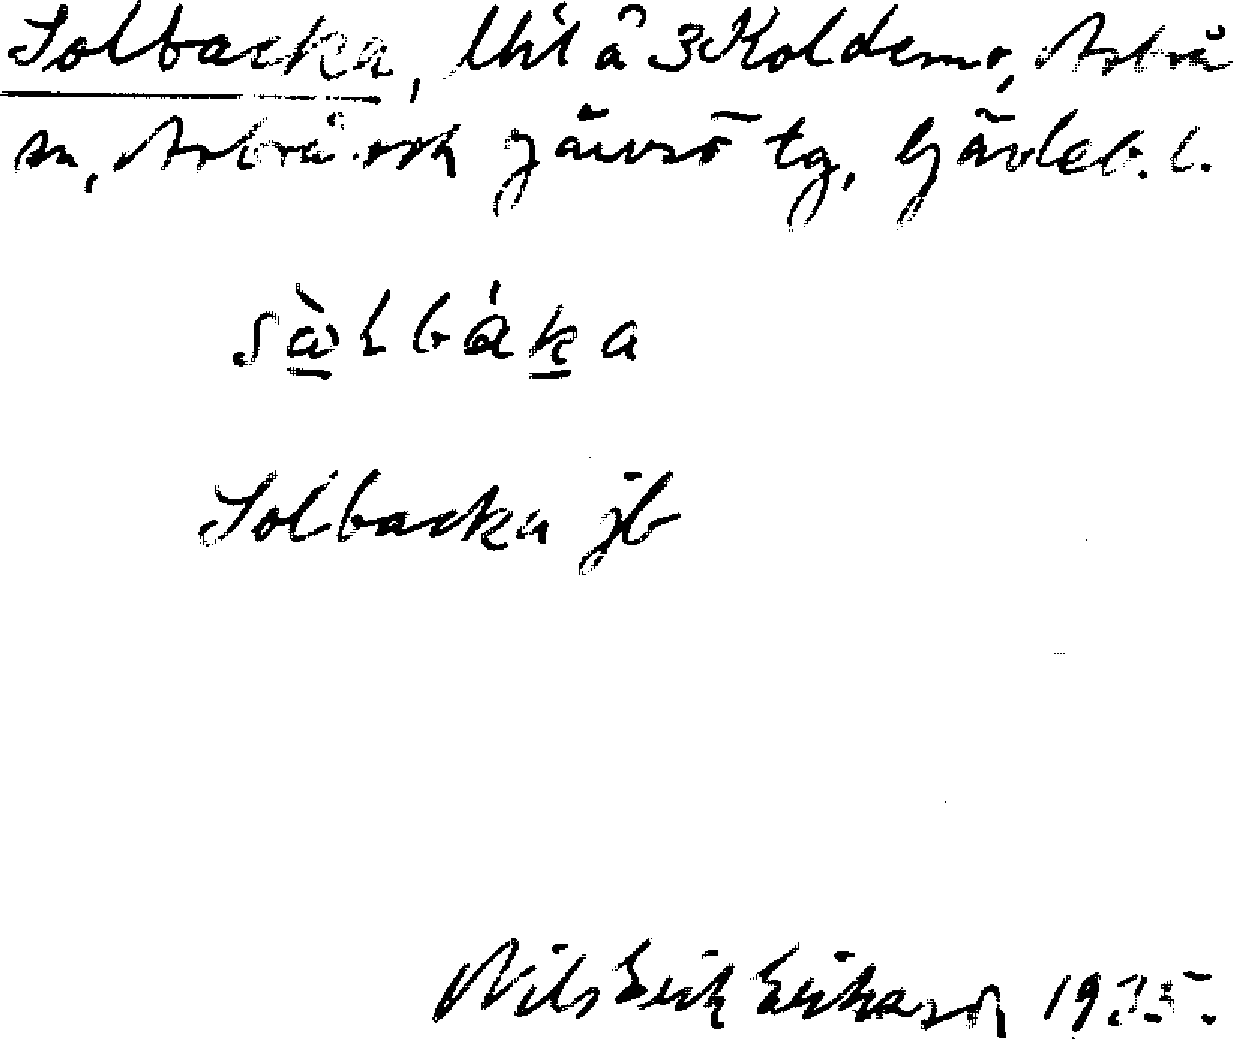 Solbacka, lht å 3 Koldemo, Arbrå
sn, Arbrå och Järvsö tg, Gävleb. l.
Solbacka jb
Nils Erik Erikson 1935.